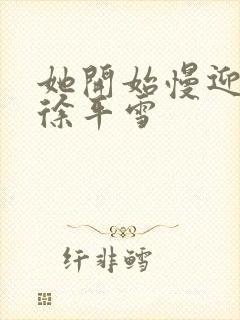 她開始慢迎
徐平雪
纤非鳕